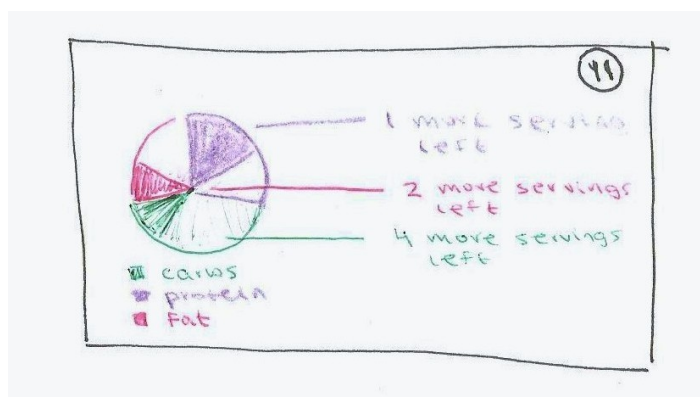 11
1 more serving
left
2 more servings
left
4 more servings
left
carbs
protein
Fat